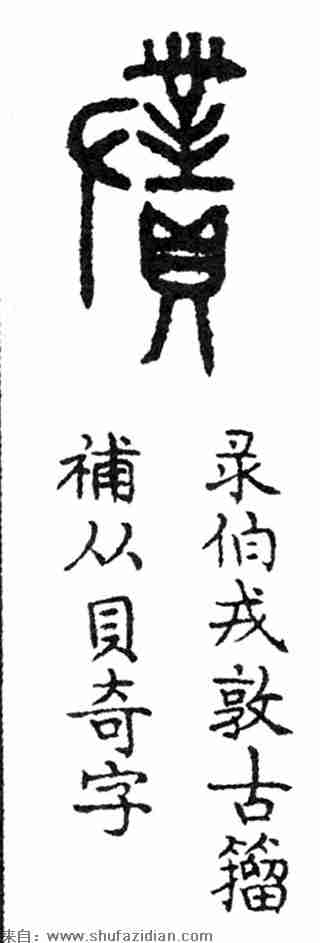 录伯戎敦古籀
補从貝奇字
来自：www.shufazidian.com